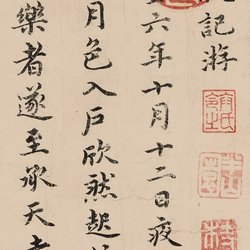 記游
六年十月十二日夜
月色入戶欣然起
樂者遂至承天寺